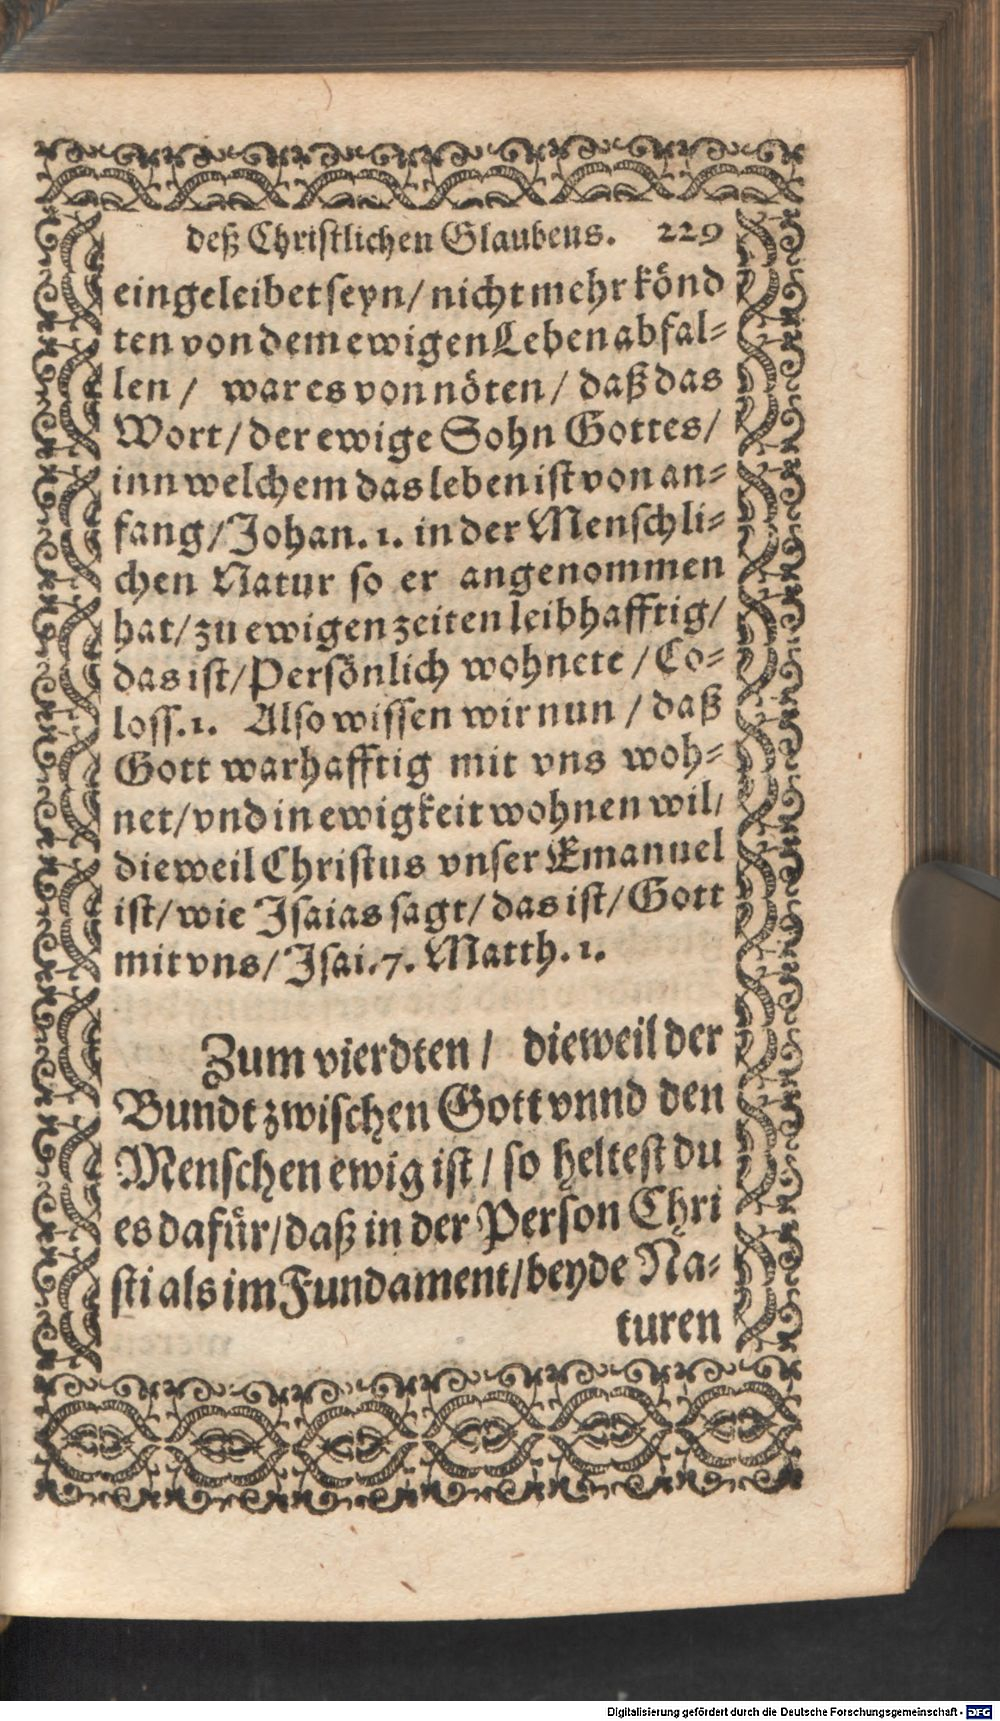 deß Christlichen Glaubens. 229
eingeleibet seyn / nicht mehr könd
ten von dem ewigen Leben abfal-
len / war es von nöten / daß das
Wort / der ewige Sohn Gottes /
inn welchem das leben ist von an-
fang / Johan. 1. in der Menschli-
chen Natur so er angenommen
hat / zu ewigen zeiten leibhafftig /
das ist / Persönlich wohnete / Co-
loss. 1. Also wissen wir nun / daß
Gott warhafftig mit vns woh-
net / vnd in ewigkeit wohnen wil /
dieweil Christus vnser Emanuel
ist / wie Isaias sagt / das ist / Gott
mit vns / Isai. 7. Matth. 1.
Zum vierdten / dieweil der
Bundt zwischen Gott vnnd den
Menschen ewig ist / so heltest du
es dafür / daß in der Person Chri
sti als im Fundament / beyde Na-
turen
Digitalisierung gefördert durch die Deutsche Forschungsgemeinschaft - DFG